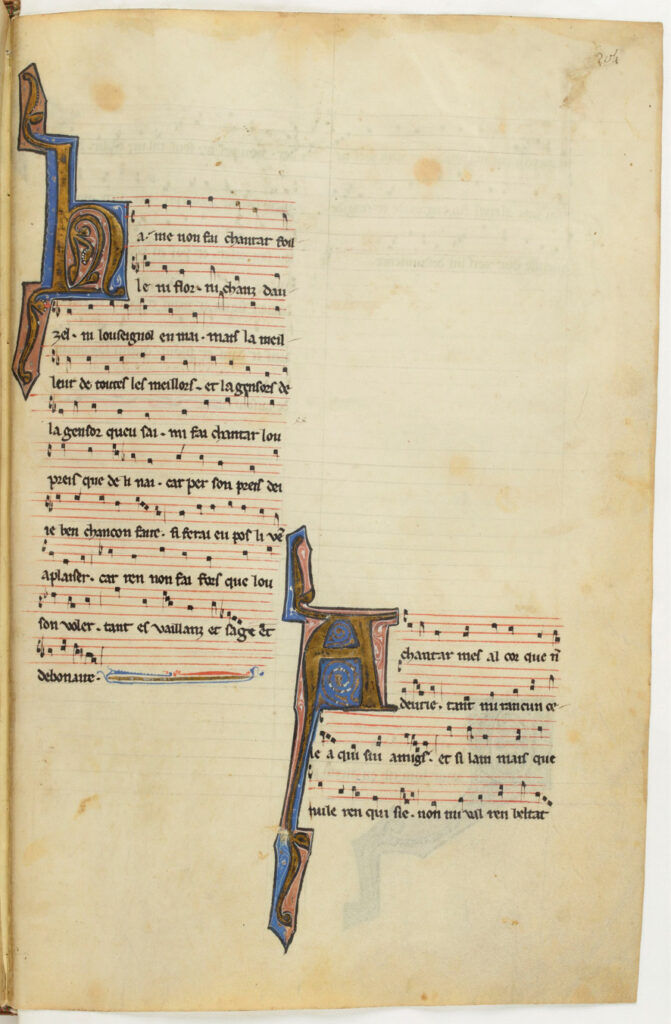 204
Ha. me non fai chantar foil
le ni flor. ni chanz dau
zel. ni louseignol en mai. mais la meil
leur de toutes les meillors. et la gensors de
la gensor queu sai. mi fai chantar lou
preis que de li nai. car per son preis dei
ie ben chancon faire. si ferai eu pos li vẽ
aplaiser. car ren non fai fors que lou
son voler. tant es vaillanz et sage et
debonaire.
A chantar mes al cor que ñ
deurie. tant mi rancun ce
le a qui sui amigs. et si lam mais que
nule ren qui sie. non mi val ren beltat